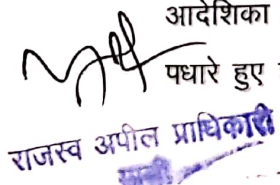 आदेशिका
पधारे हुए
राजस्व अपील प्राधिकारी